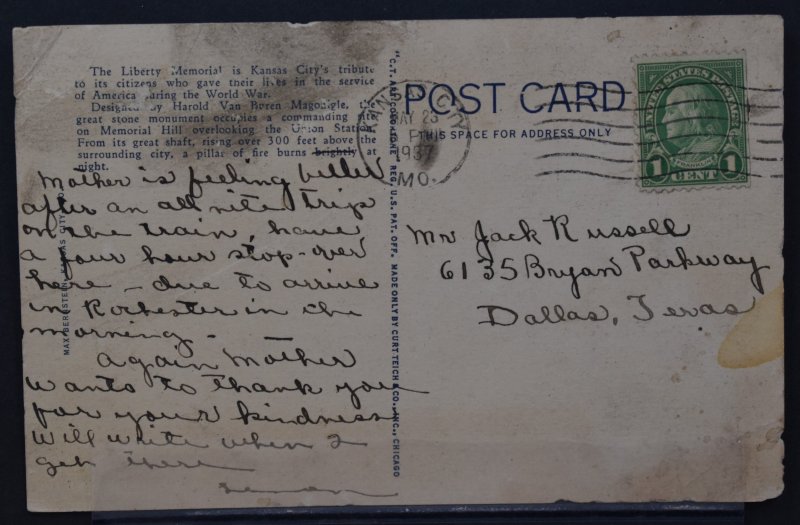 The Liberty Memorial is Kansas City's tribute
to its citizens who gave their lives in the service
of America during the World War.
Designed by Harold Van Buren Magonigle, the
great stone monument occupies a commanding site
on Memorial Hill overlooking the Union Station.
From its great shaft, rising over 300 feet above the
surrounding city, a pillar of fire burns brightly at
night.
Mother is feeling better
after an all nite trip
on the train, have
a four hour stop-over
here - due to arrive
in Rochester in the
morning -
Again Mother
wants to thank you
for your kindness
Will write when I
get there
MAX BERNSTEIN, KANSAS CITY, MO.
"C.T. ART-COLORTONE" REG. U.S. PAT. OFF. MADE ONLY BY CURT TEICH & CO., INC., CHICAGO
POST CARD
THIS SPACE FOR ADDRESS ONLY
KANSAS CITY
MAY 23
PM
1937
MO.
UNITED STATES POSTAGE
FRANKLIN
1 CENT 1
Mr Jack Russell
6135 Bryan Parkway
Dallas, Texas